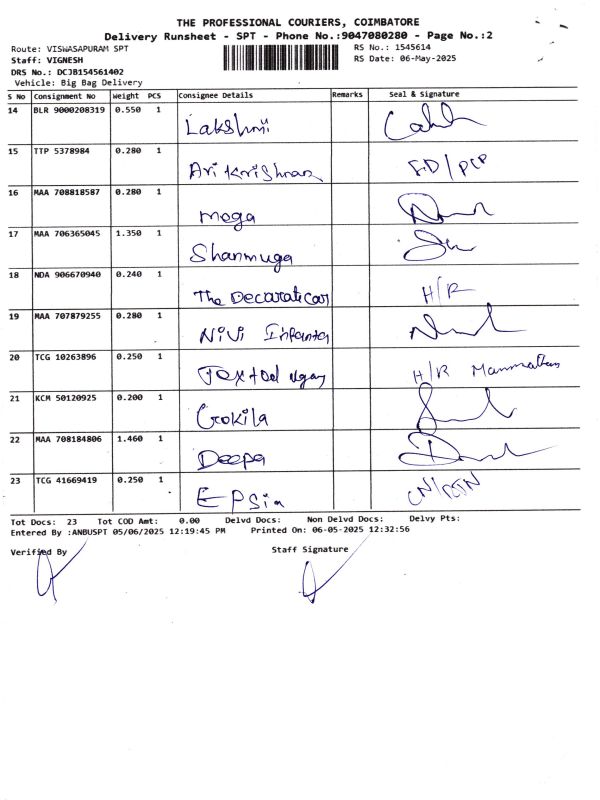 THE PROFESSIONAL COURIERS, COIMBATORE
Delivery Runsheet - SPT - Phone No.:9047080280 - Page No.:2
Route: VISWASAPURAM SPT RS No.: 1545614
Staff: VIGNESH RS Date: 06-May-2025
DRS No.: DCJB154561402
Vehicle: Big Bag Delivery
S No Consignment No Weight PCS Consignee Details Remarks Seal & Signature
14 BLR 9000208319 0.550 1 Lakshmi
15 TTP 5378984 0.280 1 Ari Krishnan
16 MAA 708818587 0.280 1 moga
17 MAA 706365045 1.350 1 Shanmuga
18 NDA 906670940 0.240 1 The H/R
19 MAA 707879255 0.280 1 Nivi
20 TCG 10263896 0.250 1 H/R
21 KCM 50120925 0.200 1 Gokila
22 MAA 708184806 1.460 1 Deepa
23 TCG 41669419 0.250 1 EPSia
Tot Docs: 23 Tot COD Amt: 0.00 Delvd Docs: Non Delvd Docs: Delvy Pts:
Entered By :ANBUSPT 05/06/2025 12:19:45 PM Printed On: 06-05-2025 12:32:56
Verified By Staff Signature